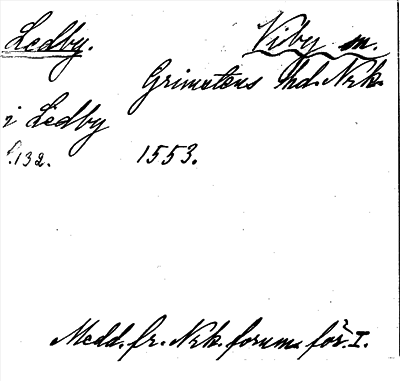 Ledby. Viby sn.
Grimstens hd. Nrk.
i Ledby
f.132. 1553.
Medd. fr. Nrk. fornm. för. I.